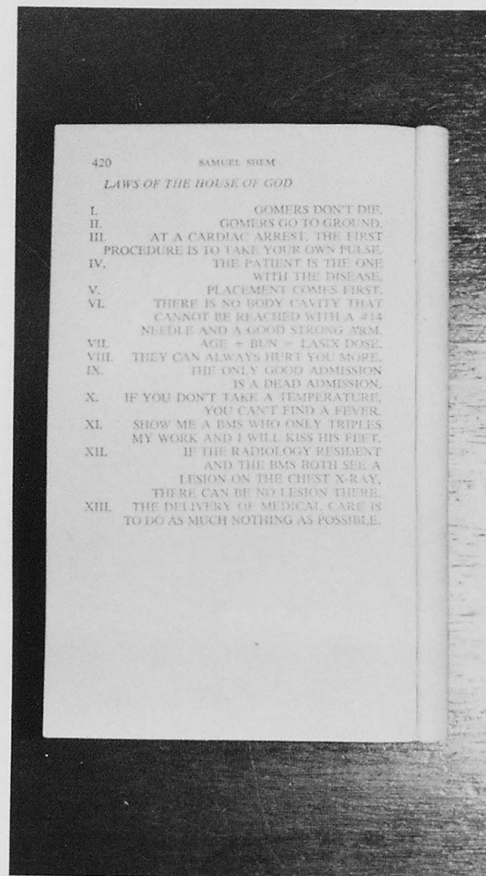 420 SAMUEL SHEM
LAWS OF THE HOUSE OF GOD
I. GOMERS DON'T DIE.
II. GOMERS GO TO GROUND.
III. AT A CARDIAC ARREST, THE FIRST
PROCEDURE IS TO TAKE YOUR OWN PULSE.
IV. THE PATIENT IS THE ONE
WITH THE DISEASE.
V. PLACEMENT COMES FIRST.
VI. THERE IS NO BODY CAVITY THAT
CANNOT BE REACHED WITH A #14
NEEDLE AND A GOOD STRONG ARM.
VII. AGE + BUN = LASIX DOSE.
VIII. THEY CAN ALWAYS HURT YOU MORE.
IX. THE ONLY GOOD ADMISSION
IS A DEAD ADMISSION.
X. IF YOU DON'T TAKE A TEMPERATURE,
YOU CAN'T FIND A FEVER.
XI. SHOW ME A BMS WHO ONLY TRIPLES
MY WORK AND I WILL KISS HIS FEET.
XII. IF THE RADIOLOGY RESIDENT
AND THE BMS BOTH SEE A
LESION ON THE CHEST X-RAY,
THERE CAN BE NO LESION THERE.
XIII. THE DELIVERY OF MEDICAL CARE IS
TO DO AS MUCH NOTHING AS POSSIBLE.